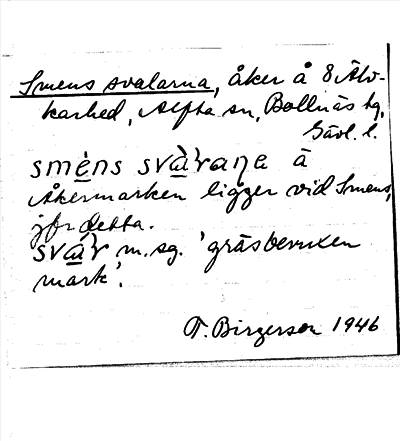 Smens svalarna, åker å 8 Älv-
karhed, Alfta sn, Bollnäs tg,
Gävl. l.
smèns svàraṇa å
Åkermarken ligger vid Smens,
jfr detta.
svàr m. sg. 'gräsbevuxen
mark'.
T. Birgerson 1946